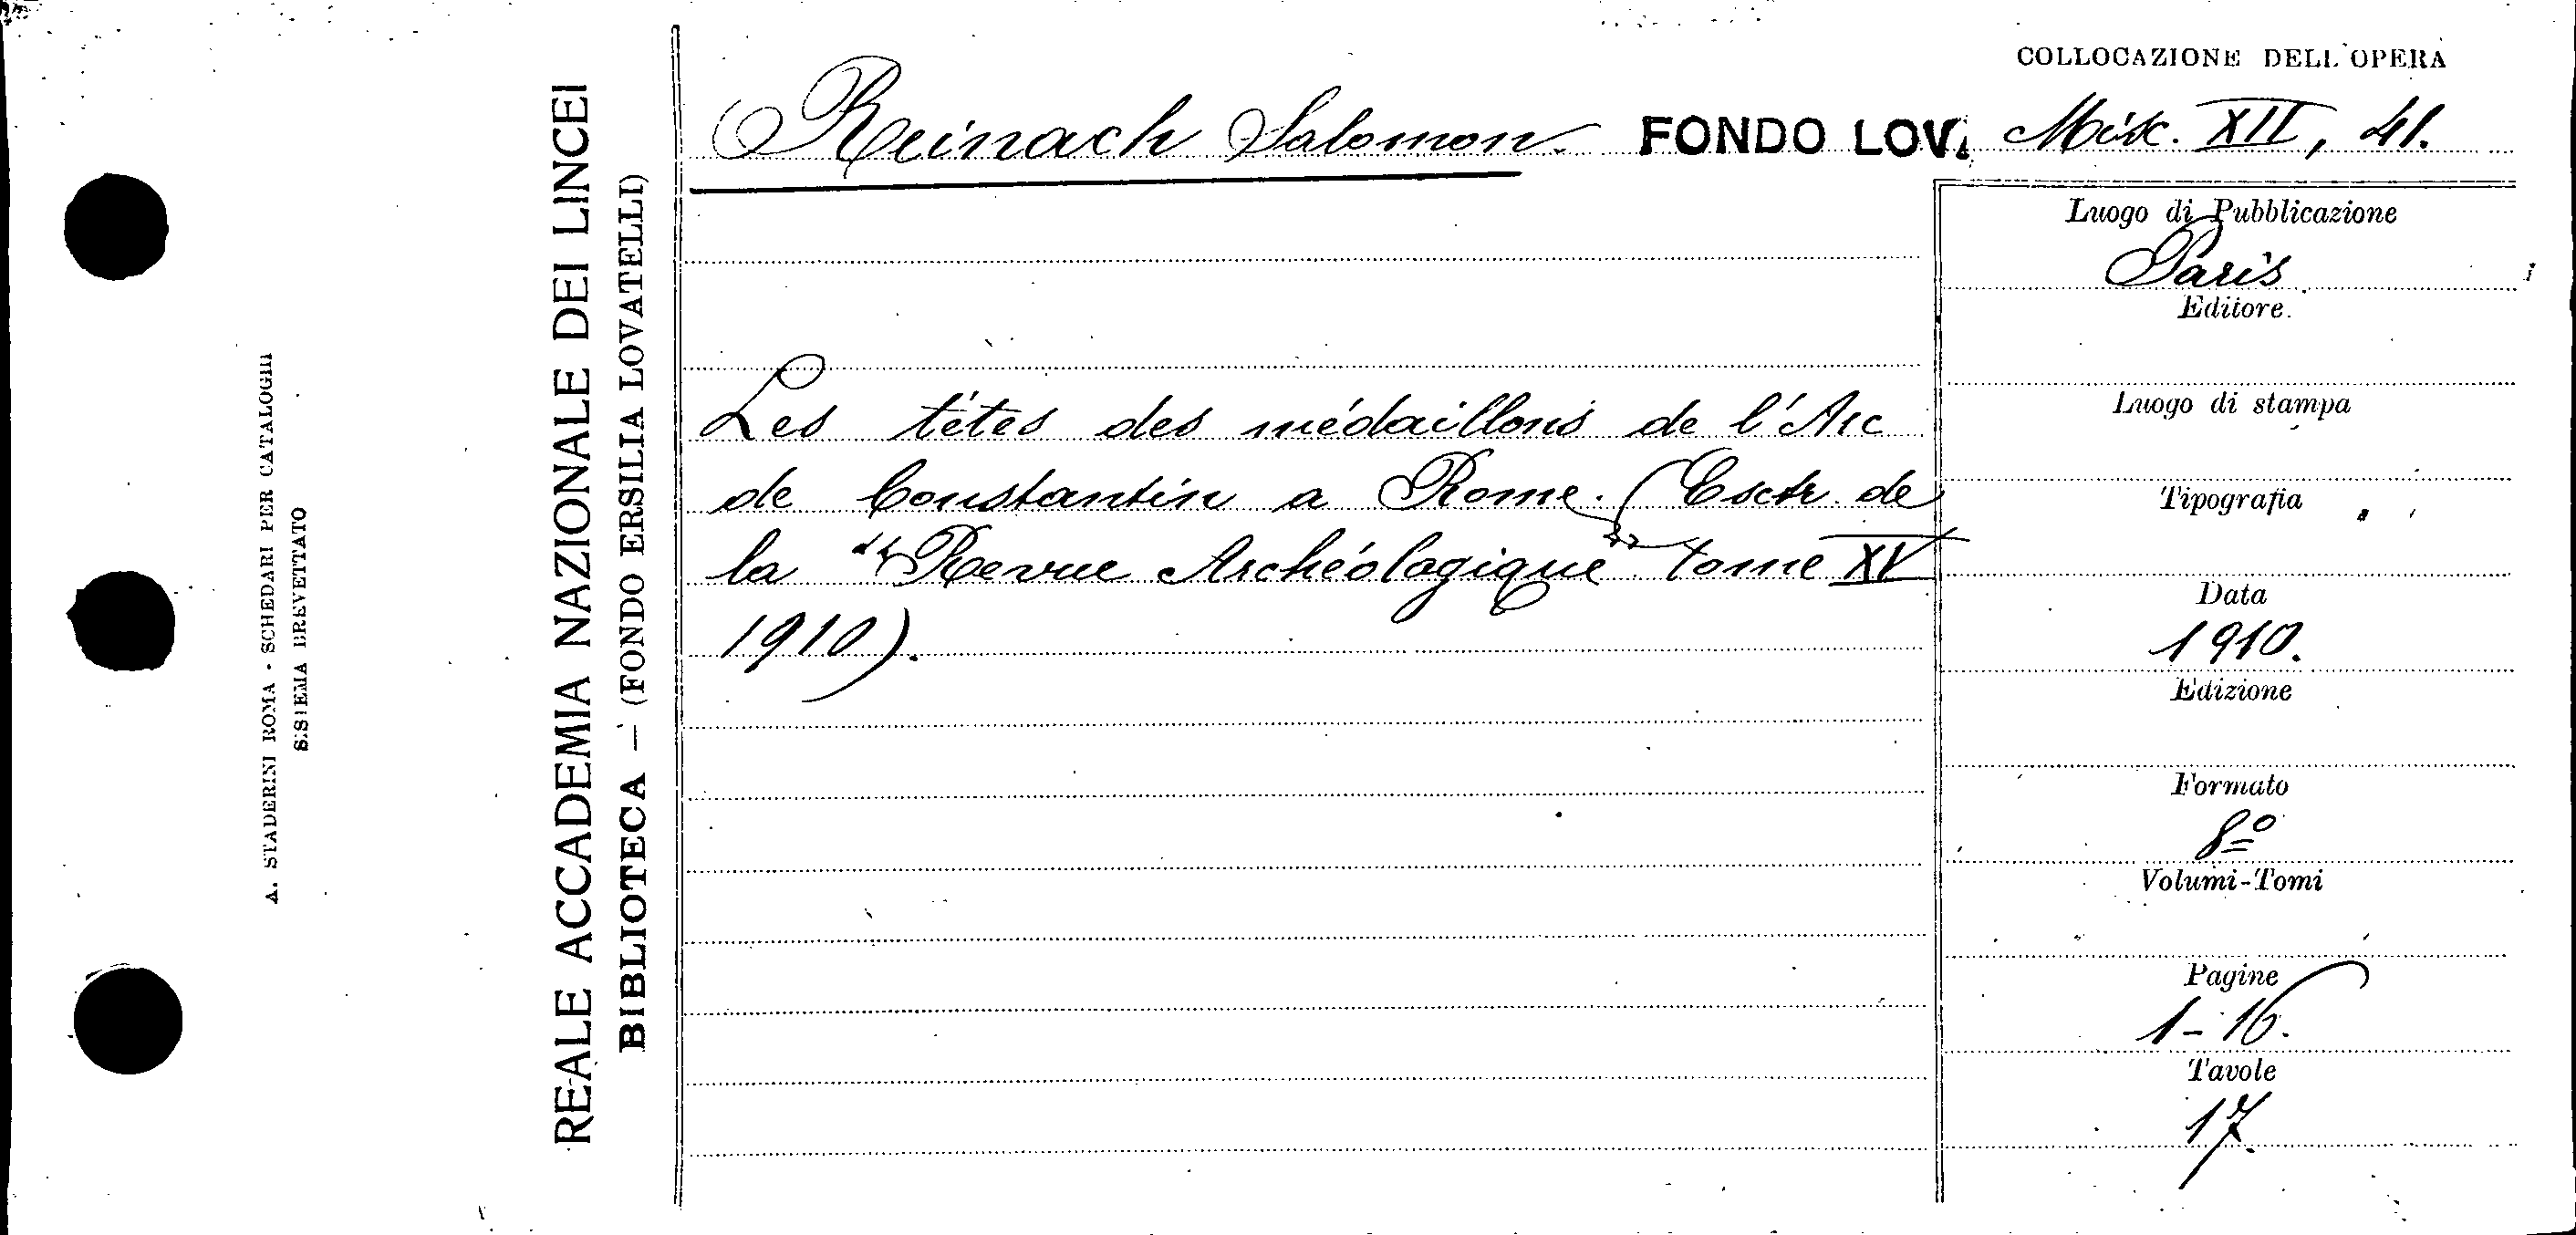 COLLOCAZIONE DELL'OPERA
Reinach Salomon. FONDO LOV. Misc. XII, 41.
Les têtes des médaillons de l'Arc
de Constantin a Rome. (Esctr. de
la "Revue Archéologique" tome XV
1910).
Luogo di Pubblicazione
Paris
Editore
Luogo di stampa
Tipografia
Data
1910.
Edizione
Formato
8º
Volumi-Tomi
Pagine
1-16.
Tavole
17.
REALE ACCADEMIA NAZIONALE DEI LINCEI
BIBLIOTECA — (FONDO ERSILIA LOVATELLI)
A. STADERINI ROMA - SCHEDARI PER CATALOGHI
SISTEMA BREVETTATO